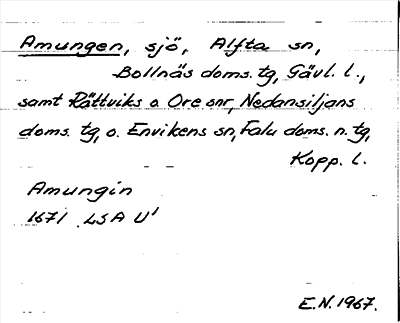 Amungen, sjö, Alfta sn,
Bollnäs doms. tg, Gävl. l.,
samt Rättviks o. Ore snr, Nedansiljans
doms. tg, o. Envikens sn, Falu doms. n. tg,
Kopp. l.
Amungin
1671 LSA U1
E.N. 1967.